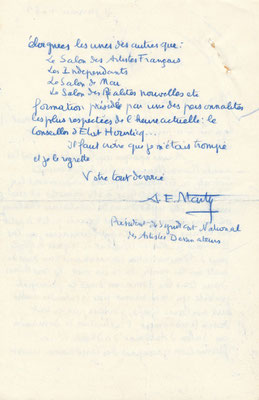 éloignées les unes des autres que :
Le Salon des Artistes Français
Les Indépendants
Le Salon de Mai
Le Salon des Réalités nouvelles etc
formation présidée par une des personnalités
les plus respectées de l'heure actuelle : le
Conseiller d'Etat Hourticq...
Il faut croire que je m'étais trompé
et je le regrette
Votre tout dévoué
A. E. Marty
Président du Syndicat National
des Artistes Décorateurs